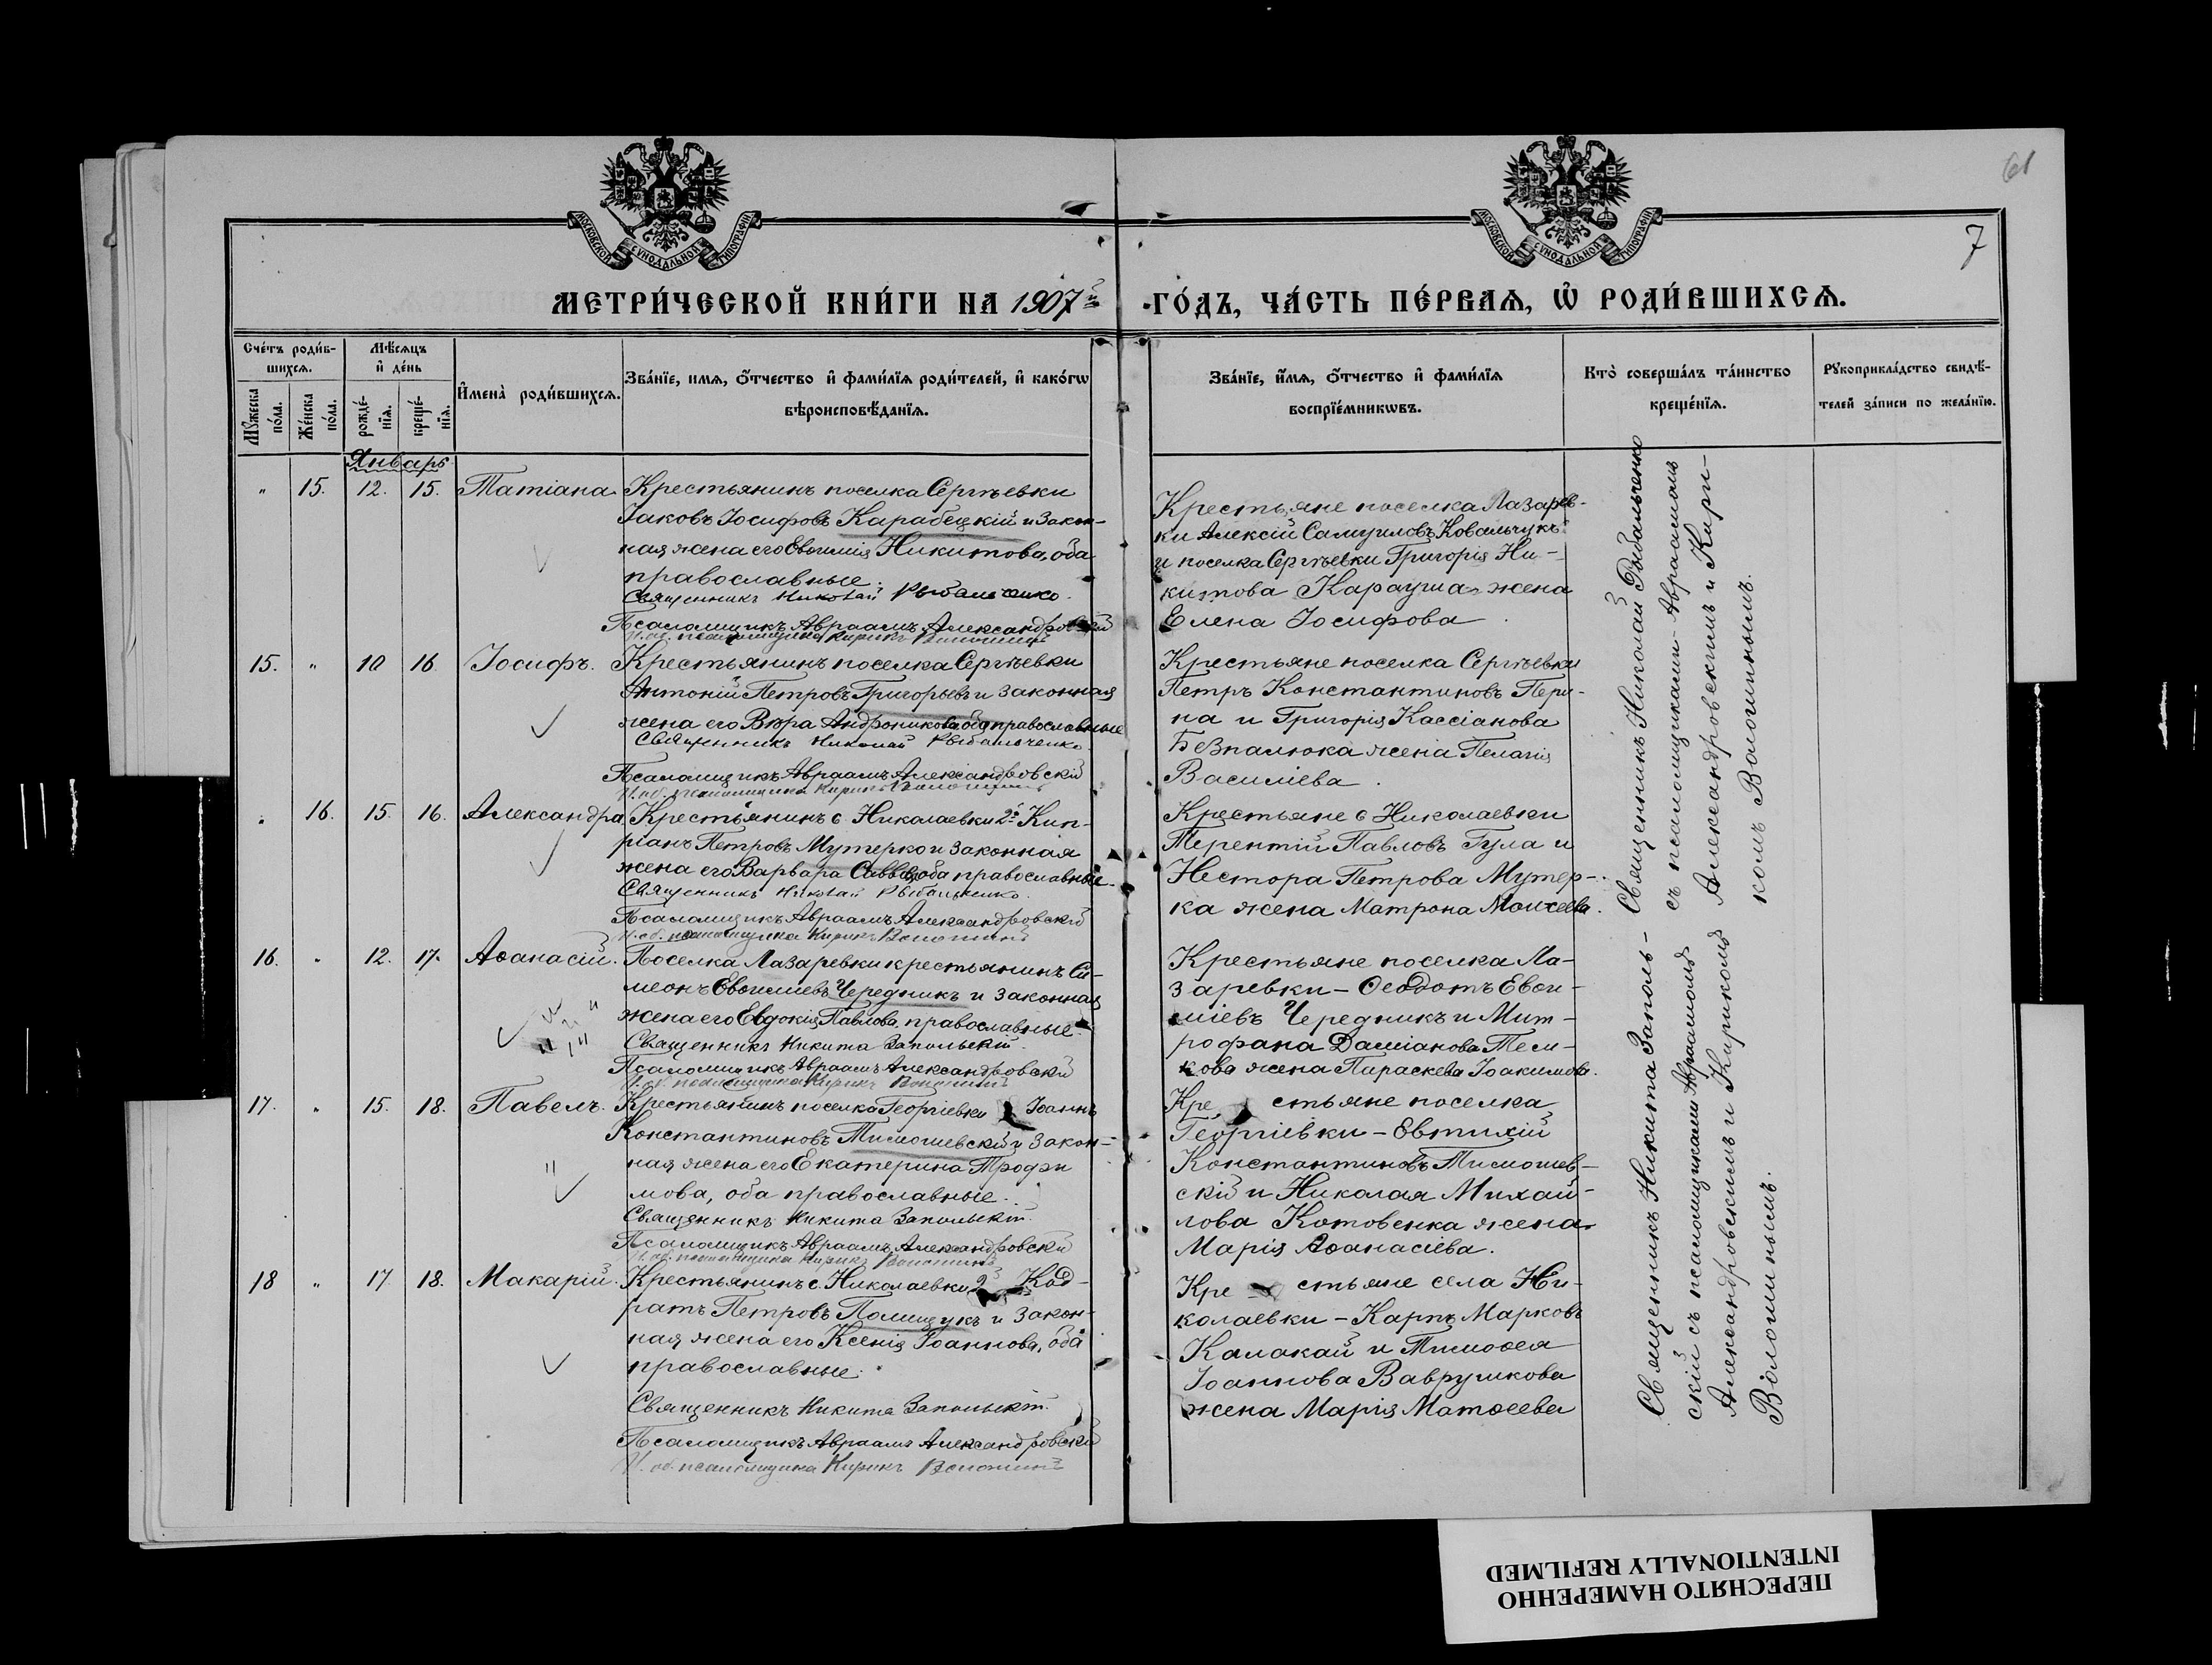 61
7
МОСКОВСКОЙ СѴНОДАЛЬНОЙ ТИПОГРАФІИ
МОСКОВСКОЙ СѴНОДАЛЬНОЙ ТИПОГРАФІИ
МЕТРИ́ЧЕСКОЙ КНИ́ГИ НА 1907й ГО́ДЪ, ЧА́СТЬ ПЕ́РВАѦ, Ѡ҆ РОДИ́ВШИХСѦ.
Сче́тъ роди́в-
шихсѧ.
Мꙋ́жеска по́ла.
Же́нска по́ла.
Мѣ́сѧцъ
и҆ де́нь
рожде́-
нїѧ.
креще́-
нїѧ.
И҆мена̀ роди́вшихсѧ.
Зва́нїе, имѧ, ѻ҆́тчество и҆ фами́лїѧ роди́телей, и҆ како́гѡ
вѣроисповѣ́данїѧ.
Зва́нїе, и҆́мѧ, ѻ҆́тчество и҆ фами́лїѧ
воспрїе́мникѡвъ.
Кто̀ соверша́лъ та́инство
креще́нїѧ.
Рꙋкоприкла́дство свидѣ́-
телей за́писи по жела́нїю.
Январь
" 15. 12. 15. Татіана
Крестьянинъ поселка Сергѣевки
Іаковъ Іосифовъ Карабецкій и закон-
ная жена его Евѳимія Никитова, оба
православные.
Священникъ Николай Рыбальченко.
Псаломщикъ Авраамъ Александровскій
И. об. псаломщика Кирикъ Волошинъ
Крестьяне поселка Лазарев-
ки Алексій Самуиловъ Ковальчукъ
и поселка Сергѣевки Григорія Ни-
китова Карауша жена
Елена Іосифова.
15. " 10 16. Іосифъ.
Крестьянинъ поселка Сергѣевки
Антоній Петровъ Григорьевъ и законная
жена его Вѣра Андроникова, оба православные
Священникъ Николай Рыбальченко
Псаломщикъ Авраамъ Александровскій
И. об. псаломщика Кирикъ Волошинъ
Крестьяне поселка Сергѣевки
Петръ Константиновъ Пери-
на и Григорія Кассіанова
Безпалюка жена Пелагія
Василіева.
" 16. 15. 16. Александра
Крестьянинъ с. Николаевки 2й Кип-
ріанъ Петровъ Мутерко и законная
жена его Варвара Саввова, оба православные.
Священникъ Николай Рыбальченко.
Псаломщикъ Авраамъ Александровскій
И. об. псаломщика Кирикъ Волошинъ
Крестьяне с Николаевки
Терентій Павловъ Гула и
Нестора Петрова Мутер-
ка жена Матрона Моисеева.
16. " 12. 17. Аѳанасій.
Поселка Лазаревки крестьянинъ Си-
меонъ Евѳиміевъ Чередникъ и законная
жена его Евдокія Павлова, православные.
Священникъ Никита Запольскій.
Псаломщикъ Авраамъ Александровскій
И. об. псаломщика Кирикъ Волошинъ
Крестьяне поселка Ла-
заревки - Ѳеодотъ Евѳи-
міевъ Чередникъ и Мит-
рофана Даміанова Тесли-
кова жена Параскева Іоакимова.
17. " 15. 18. Павелъ.
Крестьянинъ поселка Георгіевки Іоаннъ
Константиновъ Тимошевскій и закон-
ная жена его Екатерина Трофи
мова, оба православные.
Священникъ Никита Запольскій.
Псаломщикъ Авраамъ Александровскій
И. об. псаломщика Кирикъ Волошинъ
Кре стьяне поселка
Георгіевки - Евтихій
Константиновъ Тимошев-
скій и Николая Михай-
лова Котовенка жена
Марія Аѳанасіева.
18 " 17. 18. Макарій.
Крестьянинъ с. Николаевки 2й Код-
ратъ Петровъ Полищукъ и закон-
ная жена его Ксенія Іоаннова, оба
православные.
Священникъ Никита Запольскій.
Псаломщикъ Авраамъ Александровскій
И. об. псаломщика Кирикъ Волошинъ
Кре стьяне села Ни-
колаевки - Карпъ Марковъ
Калакай и Тимоѳея
Іоаннова Ваврушкова
жена Марія Матѳеева
Священникъ Николай Рыбальченко
съ псаломщиками - Авраамомъ
Александровскимъ и Кири-
комъ Волошинымъ.
Священникъ Никита Заполь-
скій съ псаломщиками Авраамомъ
Александровскимъ и Кирикомъ
Волошинымъ.
ПЕРЕСНЯТО НАМЕРЕННО
INTENTIONALLY REFILMED